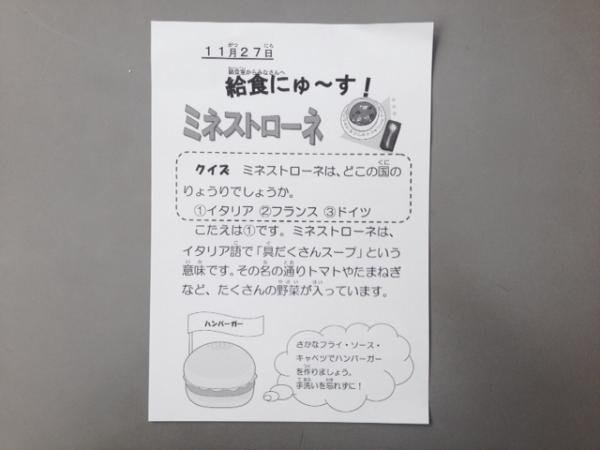 11月27日
給食室からみなさんへ
給食にゅ～す！
ミネストローネ
クイズ ミネストローネは、どこの国の
りょうりでしょうか。
①イタリア ②フランス ③ドイツ
こたえは①です。ミネストローネは、
イタリア語で「具だくさんスープ」という
意味です。その名の通りトマトやたまねぎ
など、たくさんの野菜が入っています。
ハンバーガー
さかなフライ・ソース・
キャベツでハンバーガー
を作りましょう。
手洗いを忘れずに！